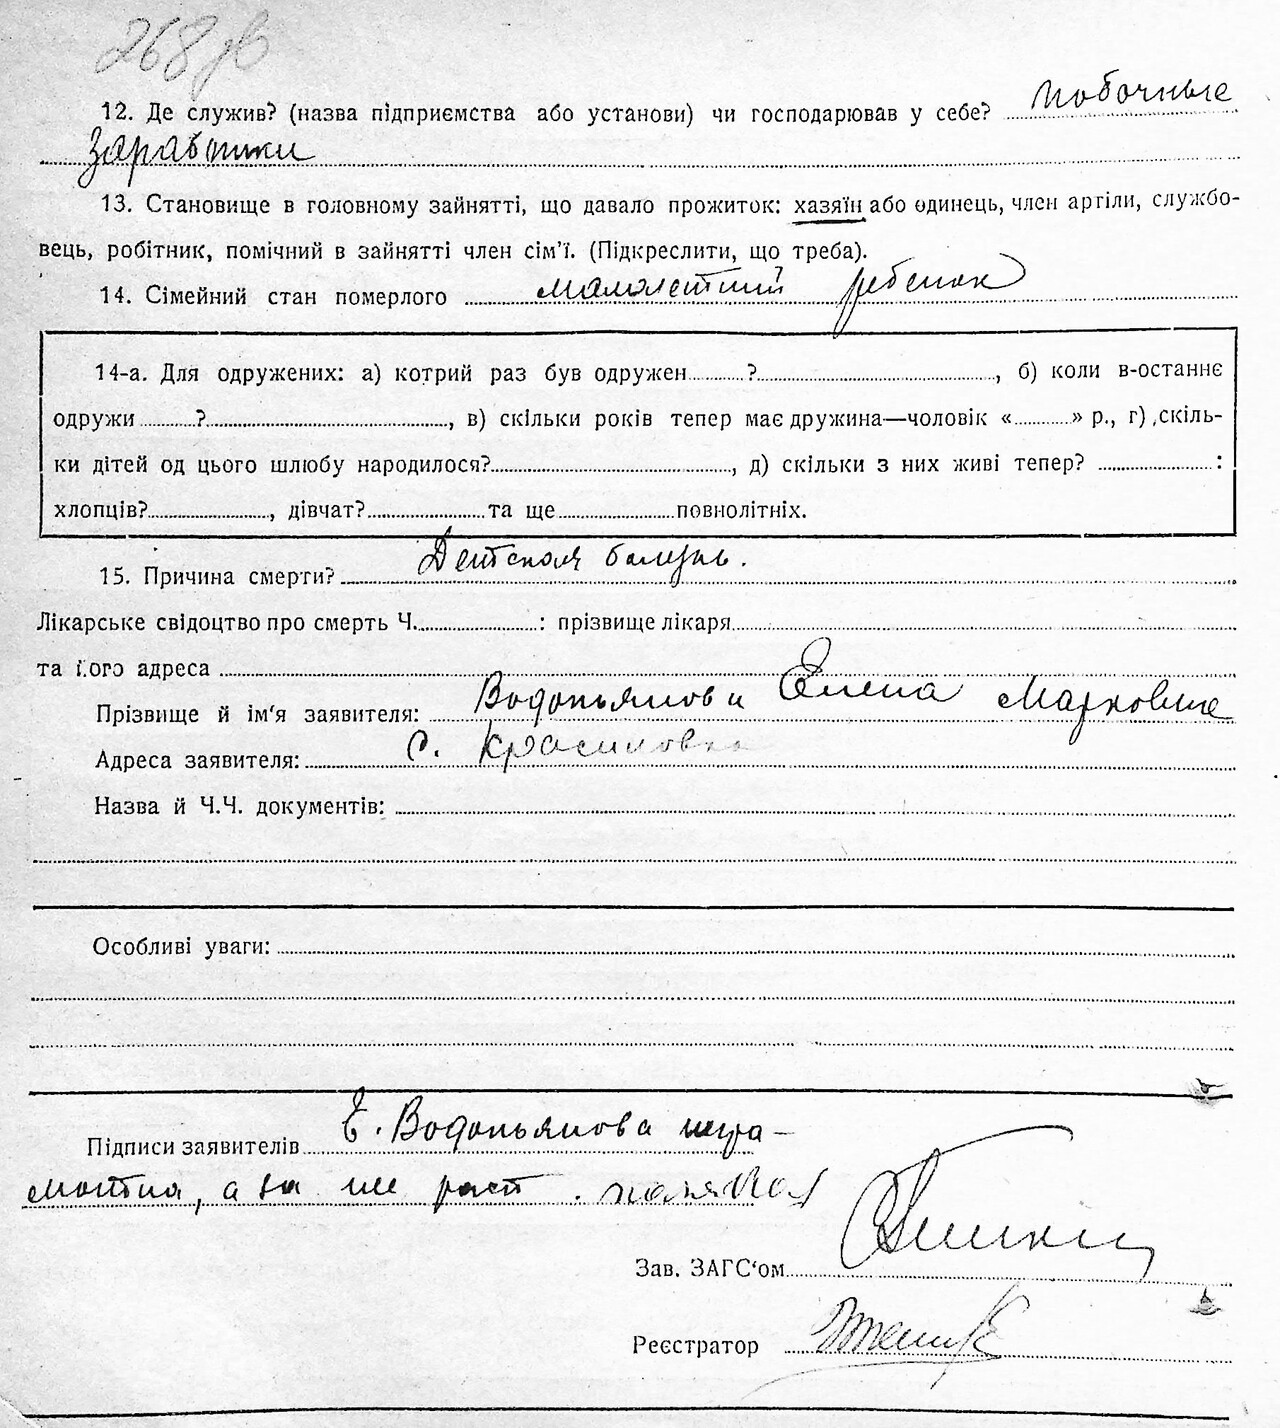 268 зв
12. Де служив? (назва підприємства або установи) чи господарював у себе? побочные
заработки
13. Становище в головному зайнятті, що давало прожиток: хазяїн або одинець, член артіли, службо-
вець, робітник, помічний в зайнятті член сім'ї. (Підкреслити, що треба).
14. Сімейний стан померлого малолетний ребенок
14-а. Для одружених: а) котрий раз був одружен ?, б) коли в-останнє
одружи ?, в) скільки років тепер має дружина—чоловік « » р., г) скіль-
ки дітей од цього шлюбу народилося?, д) скільки з них живі тепер? :
хлопців?, дівчат? та ще повнолітніх.
15. Причина смерти? Детская болезнь.
Лікарське свідоцтво про смерть Ч. : прізвище лікаря
та його адреса
Прізвище й ім'я заявителя: Водопьянова Елена Марковна
Адреса заявителя: с. Красиловка
Назва й Ч.Ч. документів:
Особливі уваги:
Підписи заявителів Е. Водопьянова негра-
мотна, а за нее расп.
Зав. ЗАГС'ом
Реєстратор